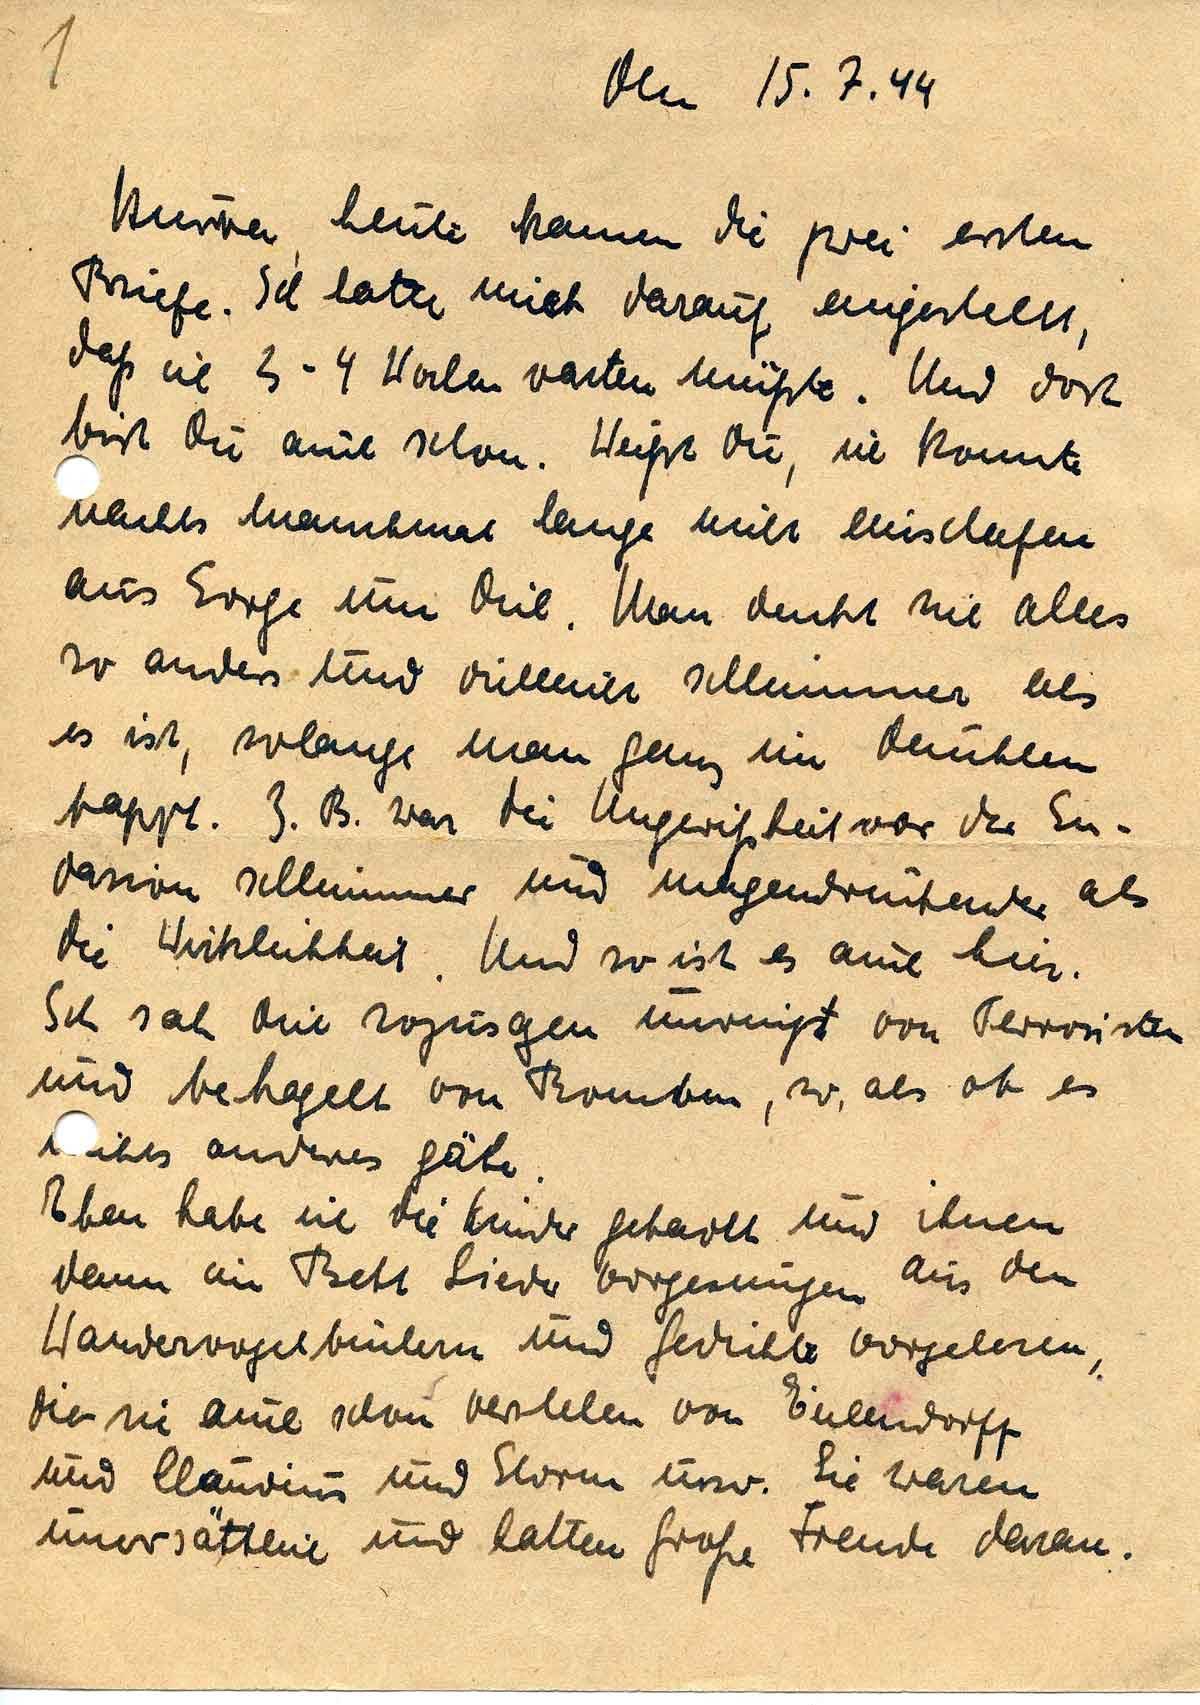 1
Den 15.7.44
Hurra, heute kamen die zwei ersten
Briefe. Ich hatte mich darauf eingestellt,
daß ich 3-4 Wochen warten müßte. Und dort
bist Du auch schon. Weißt Du, ich konnte
nachts manchmal lange nicht einschlafen
aus Sorge um Dich. Man denkt sich alles
so anders und vielleicht schlimmer als
es ist, solange man ganz im Dunklen
tappt. Z.B. war die Ungewißheit vor der In-
vasion schlimmer und magendrückender als
die Wirklichkeit. Und so ist es auch hier.
Ich sah Dich sozusagen umringt von Terroristen
und behagelt von Bomben, so, als ob es
nichts anderes gäbe.
Eben habe ich die Kinder gebadet und ihnen
dann im Bett Lieder vorgesungen aus den
Wandervogelbüchern und Gedichte vorgelesen,
die sie auch schon verstehen von Eichendorff
und Claudius und Storm usw. Sie waren
unersättlich und hatten große Freude daran.